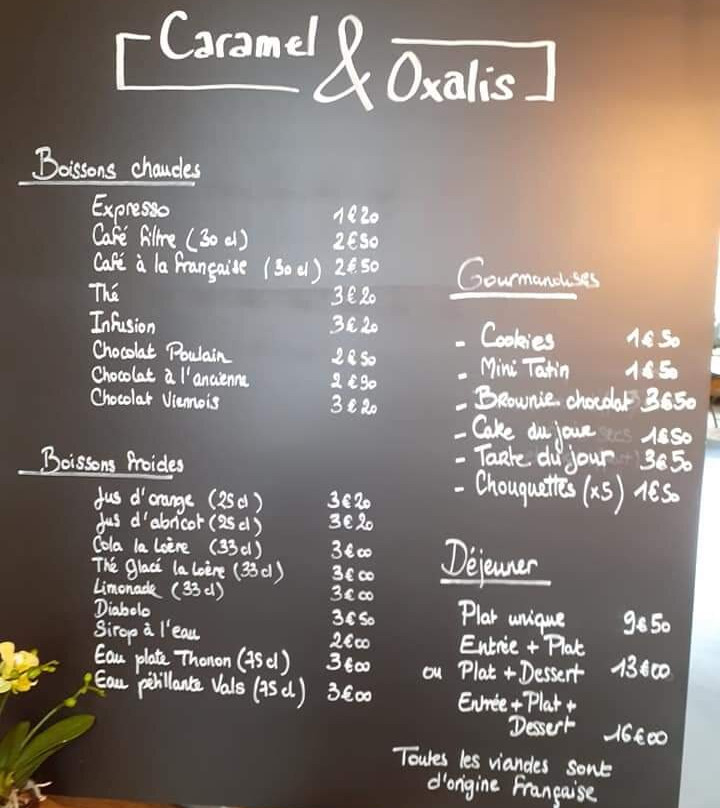 Caramel & Oxalis
Boissons chaudes
Expresso 1€20
Café filtre (30 cl) 2€50
Café à la française (30 cl) 2€50
Thé 3€20
Infusion 3€20
Chocolat Poulain 2€50
Chocolat à l'ancienne 2€90
Chocolat Viennois 3€20
Boissons froides
Jus d'orange (25 cl) 3€20
Jus d'abricot (25 cl) 3€20
Cola la Loère (33 cl) 3€00
Thé glacé la Loère (33 cl) 3€00
Limonade (33 cl) 3€00
Diabolo 3€50
Sirop à l'eau 2€00
Eau plate Thonon (75 cl) 3€00
Eau pétillante Vals (75 cl) 3€00
Gourmandises
- Cookies 1€50
- Mini Tatin 1€50
- Brownie chocolat 3€50
- Cake du jour 1€50
- Tarte du jour 3€50
- Chouquettes (x5) 1€50
Déjeuner
Plat unique 9€50
Entrée + Plat
ou Plat + Dessert 13€00
Entrée + Plat +
Dessert 16€00
Toutes les viandes sont
d'origine Française